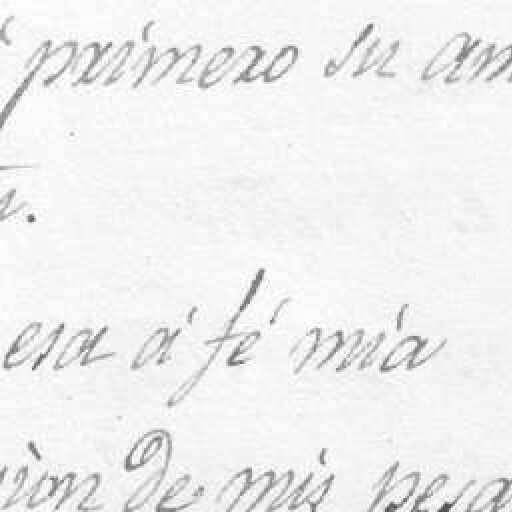 primero su am
esa á fé mia
ion de mis pesa